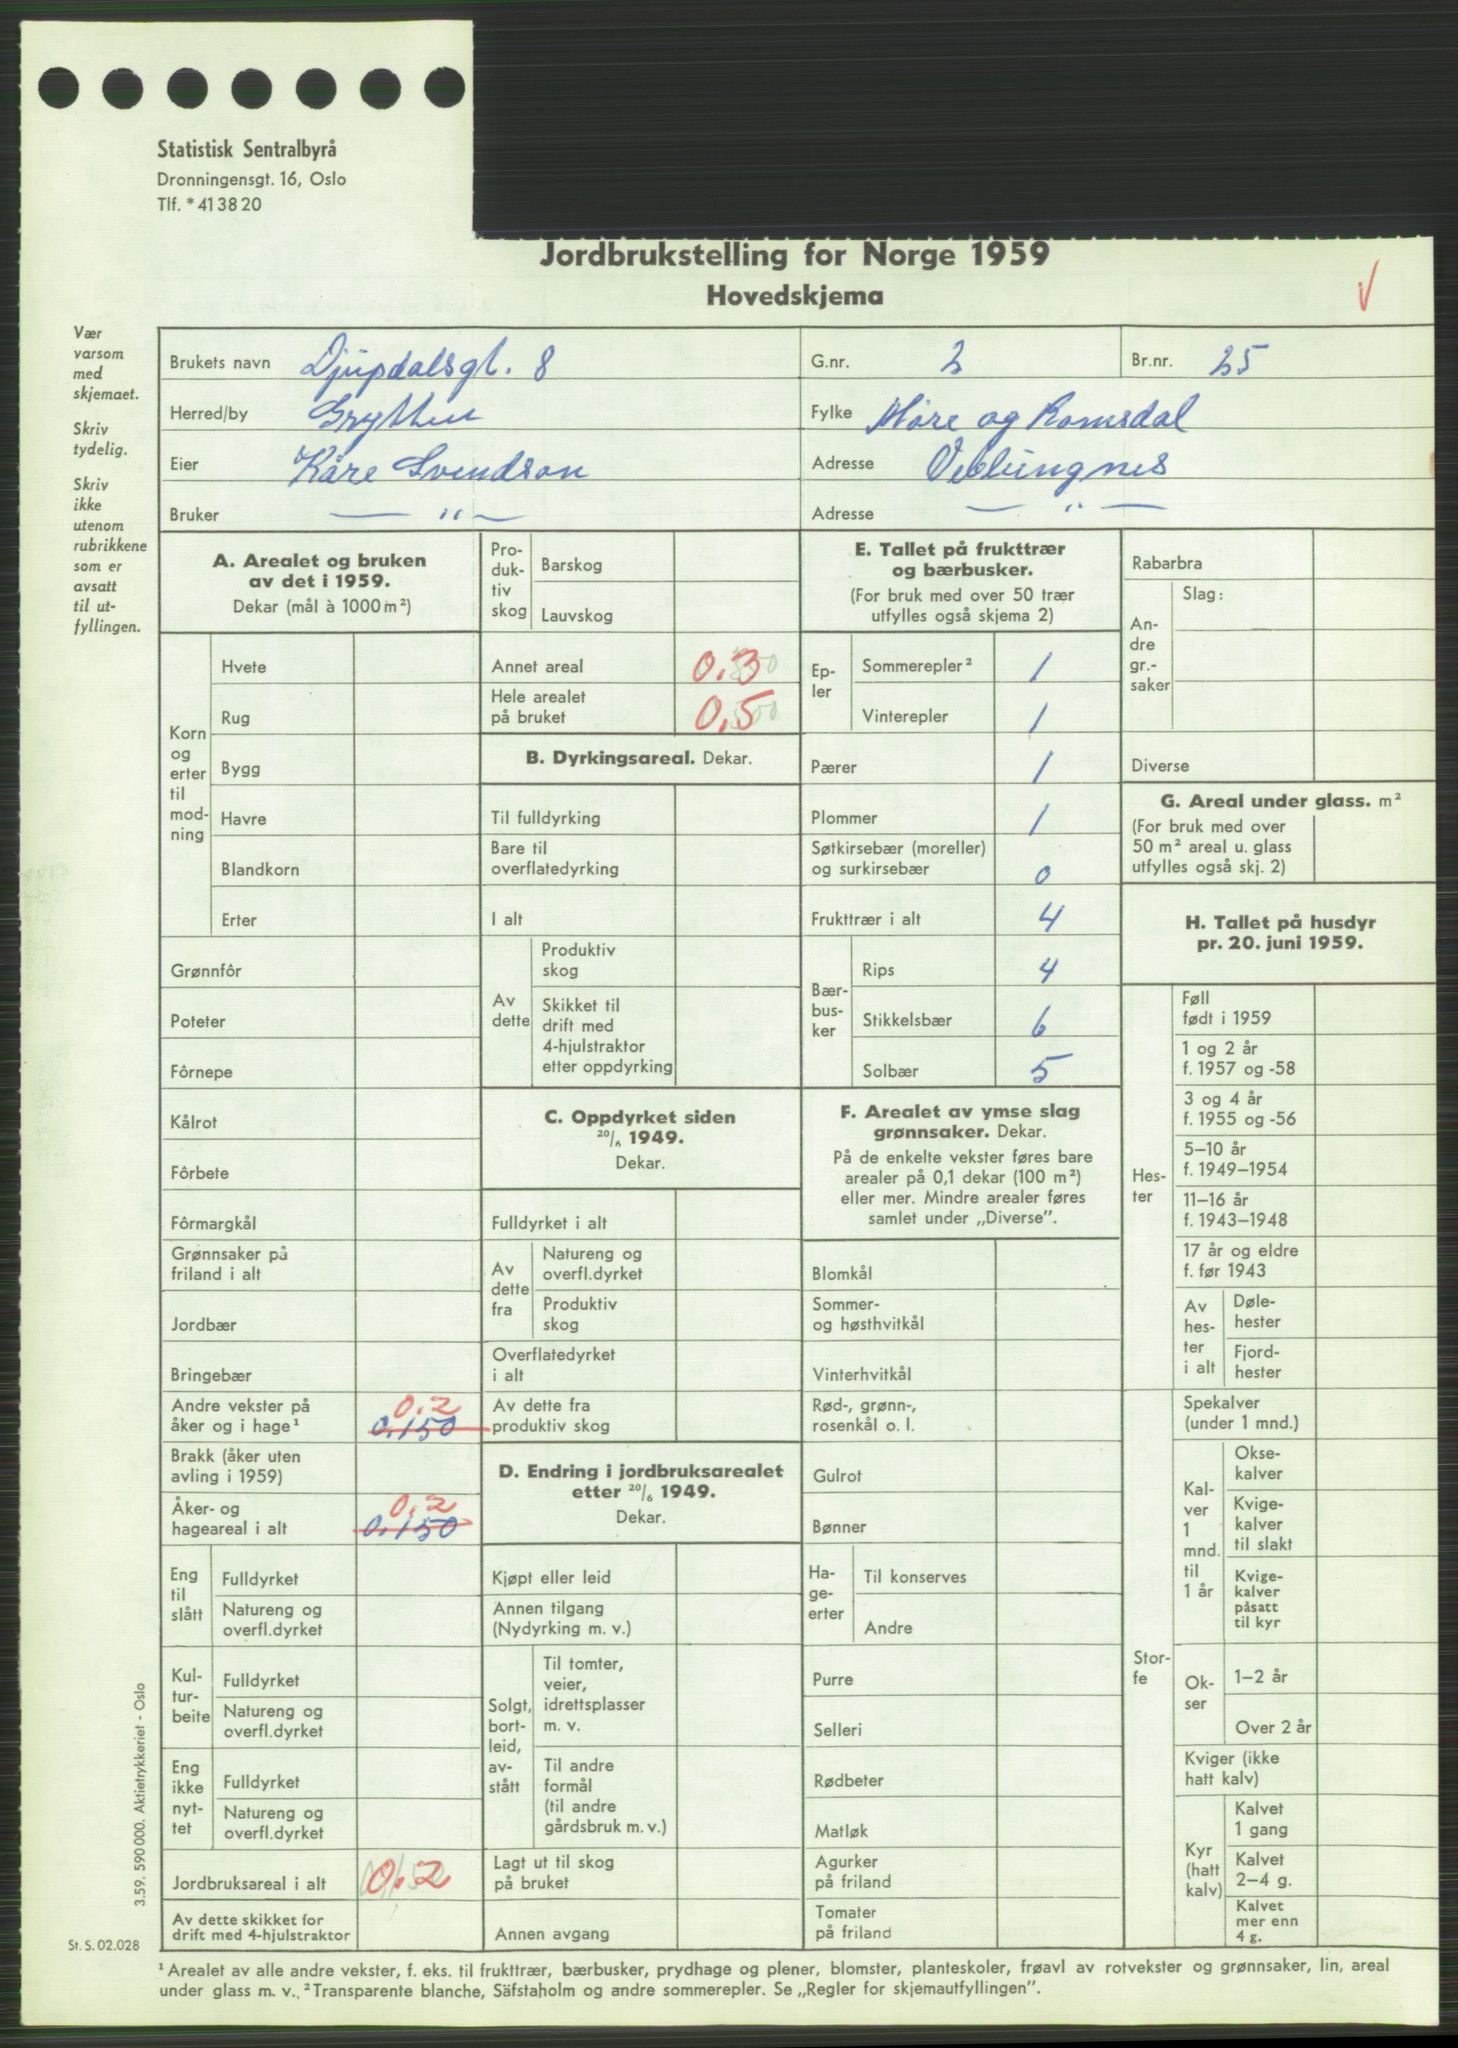 Statistisk Sentralbyrå
Dronningensgt. 16, Oslo
Tlf. * 41 38 20
Jordbrukstelling for Norge 1959
Hovedskjema
V
Vær
varsom
med
skjemaet.
Skriv
tydelig.
Skriv
ikke
utenom
rubrikkene
som er
avsatt
til ut-
fyllingen.
Brukets navn Djupdalsgt. 8 G.nr. 2 Br.nr. 25
Herred/by Grytten Fylke Møre og Romsdal
Eier Kåre Svendson Adresse Veblungnes
Bruker — „ — Adresse — „ —
A. Arealet og bruken
av det i 1959.
Dekar (mål à 1000 m²)
Korn
og
erter
til
mod-
ning
Hvete
Rug
Bygg
Havre
Blandkorn
Erter
Grønnfôr
Poteter
Fôrnepe
Kålrot
Fôrbete
Fôrmargkål
Grønnsaker på
friland i alt
Jordbær
Bringebær
Andre vekster på 0.2
åker og i hage¹ 0.150
Brakk (åker uten
avling i 1959)
Åker- og 0.2
hageareal i alt 0.150
Eng
til
slått
Fulldyrket
Natureng og
overfl.dyrket
Kul-
tur-
beite
Fulldyrket
Natureng og
overfl.dyrket
Eng
ikke
nyt-
tet
Fulldyrket
Natureng og
overfl.dyrket
Jordbruksareal i alt 0.2
Av dette skikket for
drift med 4-hjulstraktor
Pro-
duk-
tiv
skog
Barskog
Lauvskog
Annet areal 0.3
Hele arealet
på bruket 0,5
B. Dyrkingsareal. Dekar.
Til fulldyrking
Bare til
overflatedyrking
I alt
Av
dette
Produktiv
skog
Skikket til
drift med
4-hjulstraktor
etter oppdyrking
C. Oppdyrket siden
20/6 1949.
Dekar.
Fulldyrket i alt
Av
dette
fra
Natureng og
overfl.dyrket
Produktiv
skog
Overflatedyrket
i alt
Av dette fra
produktiv skog
D. Endring i jordbruksarealet
etter 20/6 1949.
Dekar.
Kjøpt eller leid
Annen tilgang
(Nydyrking m. v.)
Solgt,
bort-
leid,
av-
stått
Til tomter,
veier,
idrettsplasser
m. v.
Til andre
formål
(til andre
gårdsbruk m. v.)
Lagt ut til skog
på bruket
Annen avgang
E. Tallet på frukttrær
og bærbusker.
(For bruk med over 50 trær
utfylles også skjema 2)
Ep-
ler
Sommerepler² 1
Vinterepler 1
Pærer 1
Plommer 1
Søtkirsebær (moreller)
og surkirsebær 0
Frukttrær i alt 4
Bær-
bus-
ker
Rips 4
Stikkelsbær 6
Solbær 5
F. Arealet av ymse slag
grønnsaker. Dekar.
På de enkelte vekster føres bare
arealer på 0,1 dekar (100 m²)
eller mer. Mindre arealer føres
samlet under „Diverse”.
Blomkål
Sommer-
og høsthvitkål
Vinterhvitkål
Rød-, grønn-,
rosenkål o. l.
Gulrot
Bønner
Ha-
ge-
erter
Til konserves
Andre
Purre
Selleri
Rødbeter
Matløk
Agurker
på friland
Tomater
på friland
Rabarbra
An-
dre
gr.-
saker
Slag:
Diverse
G. Areal under glass. m²
(For bruk med over
50 m² areal u. glass
utfylles også skj. 2)
H. Tallet på husdyr
pr. 20. juni 1959.
Hes-
ter
Føll
født i 1959
1 og 2 år
f. 1957 og -58
3 og 4 år
f. 1955 og -56
5–10 år
f. 1949–1954
11–16 år
f. 1943–1948
17 år og eldre
f. før 1943
Av
hes-
ter
i alt
Døle-
hester
Fjord-
hester
Stor-
fe
Spekalver
(under 1 mnd.)
Kal-
ver
1
mnd.
til
1 år
Okse-
kalver
Kvige-
kalver
til slakt
Kvige-
kalver
påsatt
til kyr
Ok-
ser
1–2 år
Over 2 år
Kviger (ikke
hatt kalv)
Kyr
(hatt
kalv)
Kalvet
1 gang
Kalvet
2–4 g.
Kalvet
mer enn
4 g.
3.59. 590 000. Aktietrykkeriet - Oslo
St. S. 02.028
¹ Arealet av alle andre vekster, f. eks. til frukttrær, bærbusker, prydhage og plener, blomster, planteskoler, frøavl av rotvekster og grønnsaker, lin, areal
under glass m. v. ² Transparente blanche, Säfstaholm og andre sommerepler. Se „Regler for skjemautfyllingen”.